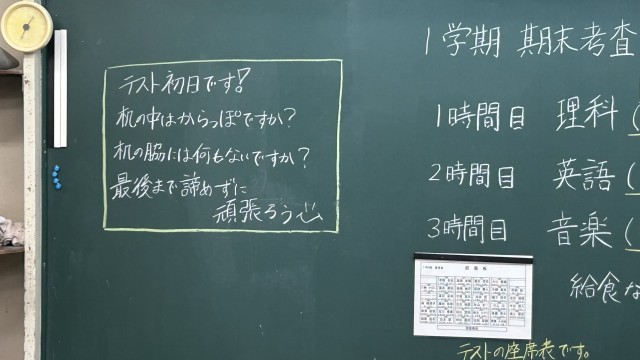 テスト初日です!
机の中はからっぽですか?
机の脇には何もないですか?
最後まで諦めずに
頑張ろう
1学期 期末考査
1時間目 理科(
2時間目 英語(
3時間目 音楽(
給食な
座席表
テストの座席表です。